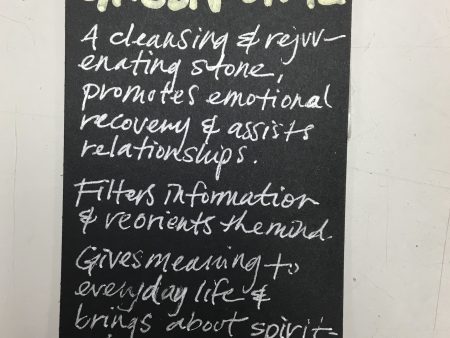 A cleansing & rejuv-
enating stone,
promotes emotional
recovery & assists
relationships.
Filters information
& reorients the mind.
Gives meaning to
everyday life &
brings about spirit-